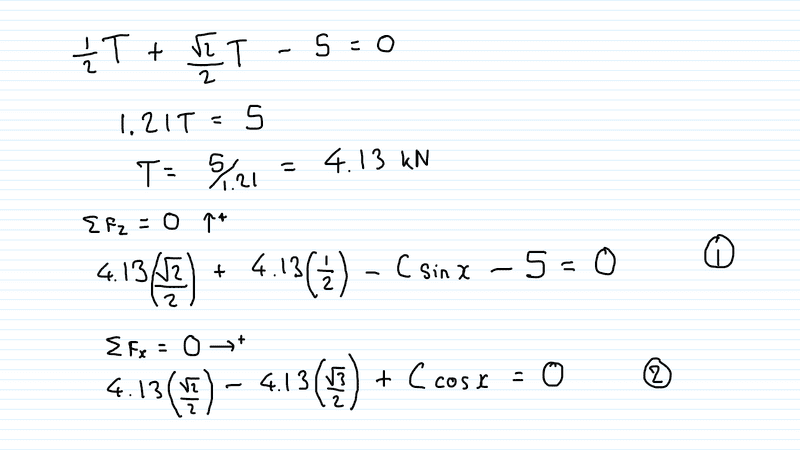 ½T + √2/2 T - 5 = 0
1.21T = 5
T = 5/1.21 = 4.13 kN
ΣFz = 0 ↑+
4.13(√2/2) + 4.13(1/2) - C sin x - 5 = 0 ①
ΣFx = 0 →+
4.13(√2/2) - 4.13(√3/2) + C cos x = 0 ②